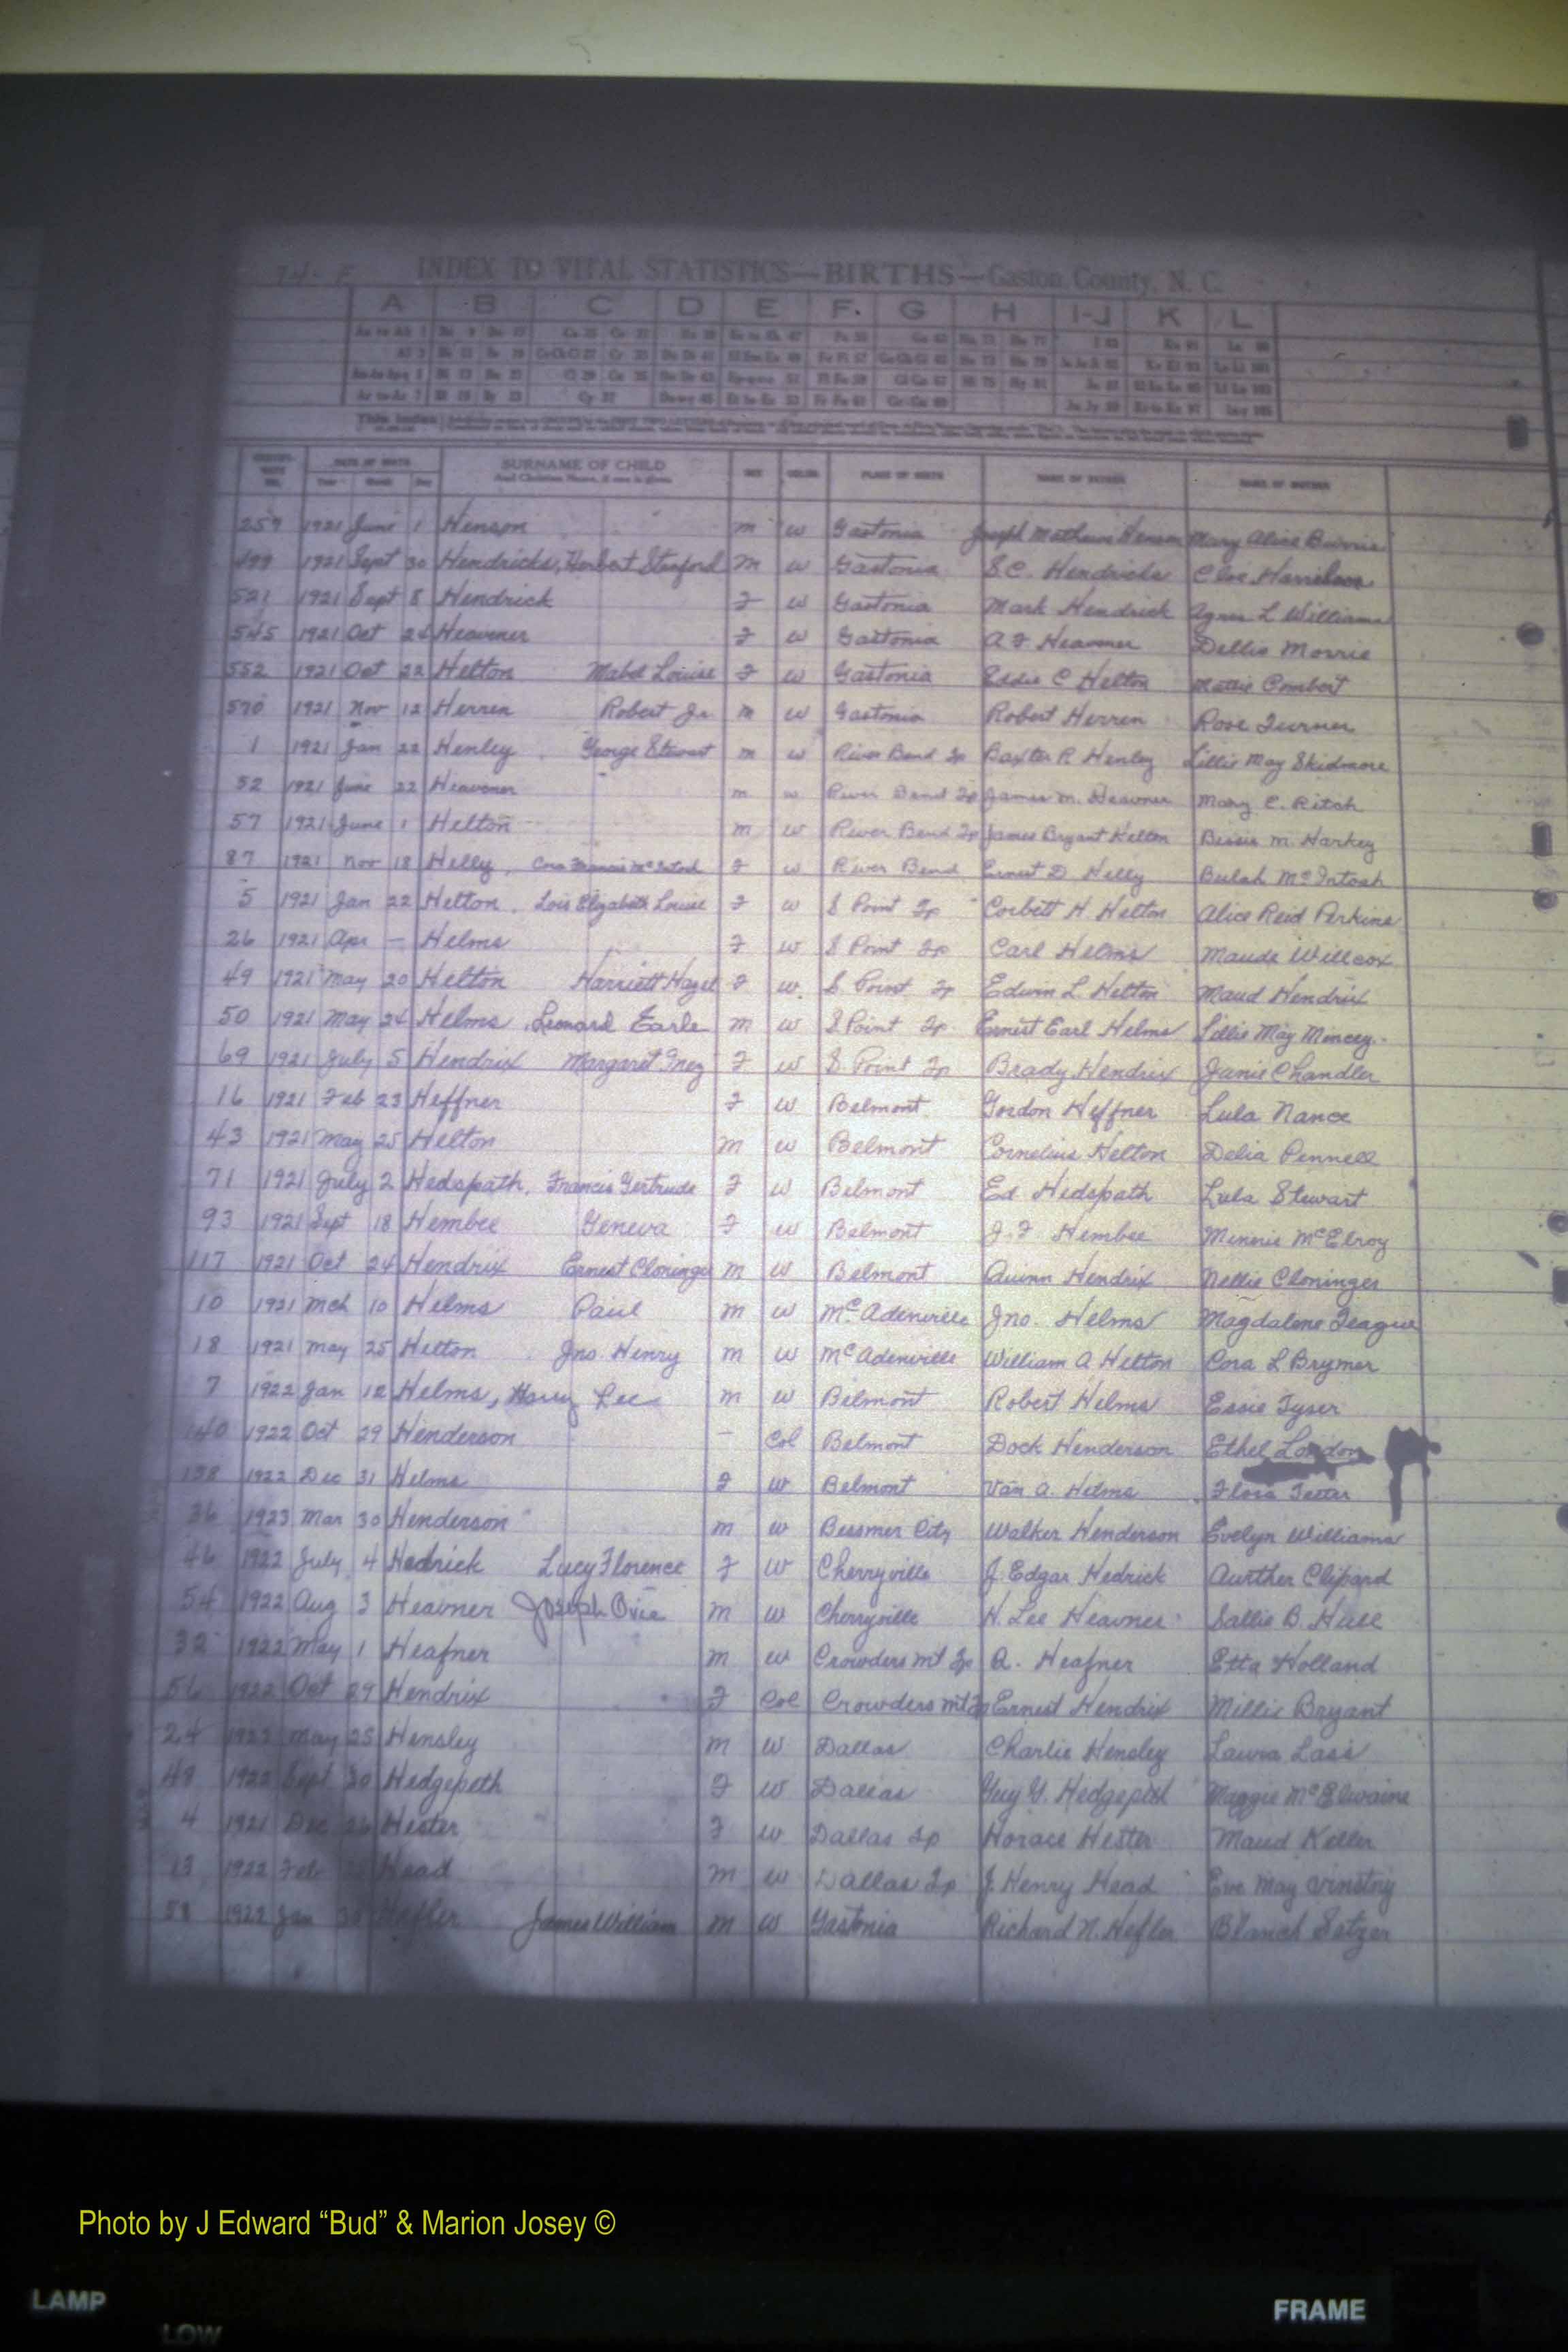 74-F INDEX TO VITAL STATISTICS—BIRTHS—Gaston County, N. C.
A B C D E F G H I-J K L
DATE OF BIRTH SURNAME OF CHILD SEX COLOR PLACE OF BIRTH NAME OF FATHER NAME OF MOTHER
Year Month Day And Christian Name, if one is given
259 1921 June 1 Henson m w Gastonia Joseph Mathews Henson Mary Alice
499 1921 Sept 30 Hendricks, Herbert Stanford M w Gastonia S.C. Hendricks Cloe
521 1921 Sept 8 Hendrick F w Gastonia Mark Hendrick Agnes L Williams
545 1921 Oct 24 Heavener F w Gastonia A F Heavner Dellie Morris
552 1921 Oct 22 Helton Mabel Louise F w Gastonia Eddie C Helton Mattie Combert
570 1921 Nov 12 Herren Robert Jr. m w Gastonia Robert Herren Rose Turner
1 1921 Jan 22 Henley George Stewart m w River Bend Tp Baxter R Henley Lillie May Skidmore
52 1921 June 22 Heavener m w River Bend Tp James M. Heavner Mary C. Ritch
57 1921 June 1 Helton m w River Bend Tp James Bryant Helton Bessie M. Harkey
87 1921 Nov 18 Helly, Cora Francis McIntosh F w River Bend Ernest D Helly Beulah McIntosh
5 1921 Jan 22 Helton, Lois Elizabeth Louise F w S Point Tp Corbett H Helton Alice Reid Perkins
26 1921 Apr — Helms F w S Point Tp Carl Helms Maude Willcox
49 1921 May 20 Helton Harriett Hazel F w. S. Point Tp Edwin L Helton Maud Hendrix
50 1921 May 24 Helms, Leonard Earle m w S Point Tp. Ernest Earl Helms Lillie May Mincey.
69 1921 July 5 Hendrix Margaret Inez F w S. Point Tp Brady Hendrix Janie Chandler
16 1921 Feb 23 Heffner F w Belmont Gordon Heffner Lula Nance
43 1921 May 25 Helton m w Belmont Cornelius Helton Delia Pennell
71 1921 July 2 Hedspath, Francis Gertrude F w Belmont Ed Hedspath Lula Stewart
93 1921 Sept 18 Hembee Geneva F w Belmont J. F Hembee McElroy
117 1921 Oct 24 Hendrix Ernest Cloninger m w Belmont Quinn Hendrix Nellie Cloninger
10 1921 Mch 10 Helms Paul m w McAdenville Jno. Helms Magdalene Teague
18 1921 May 25 Helton Jno. Henry m w McAdenville William A Helton Cora L Brymer
7 1922 Jan 12 Helms, Harry Lee m w Belmont Robert Helms Essie Tyser
140 1922 Oct 29 Henderson — Col Belmont Dock Henderson Ethel London
158 1922 Dec 31 Helms F w Belmont Van A. Helms Flora Teeter
36 1923 Mar 30 Henderson m w Bessmer City Walker Henderson Evelyn Williams
46 1922 July 4 Hedrick Lucy Florence F w Cherryville J. Edgar Hedrick Aurther Clipard
54 1922 Aug 3 Heavner Joseph Ovie m w Cherryville H. Lee Heavner Sallie B. Hull
32 1922 May 1 Heafner m w Crowders mt Tp A. Heafner Etta Holland
56 1922 Oct 29 Hendrix F Col Crowders mt Tp Ernest Hendrix Millie Bryant
24 May 25 Hensley m w Dallas Charlie Hensley Laura Lass
49 1922 Sept 30 Hedgepeth F w Dallas Guy G. Hedgepeth Maggie McElwaine
4 1921 Dec 26 Hester F w Dallas Tp Horace Hester Maud Keller
13 1922 Feb Head m w Dallas Tp J. Henry Head Eve May
58 1922 Jan Hefler James William m w Gastonia Richard N. Hefler Blanch Setzer
Photo by J Edward “Bud” & Marion Josey ©
LAMP
LOW
FRAME